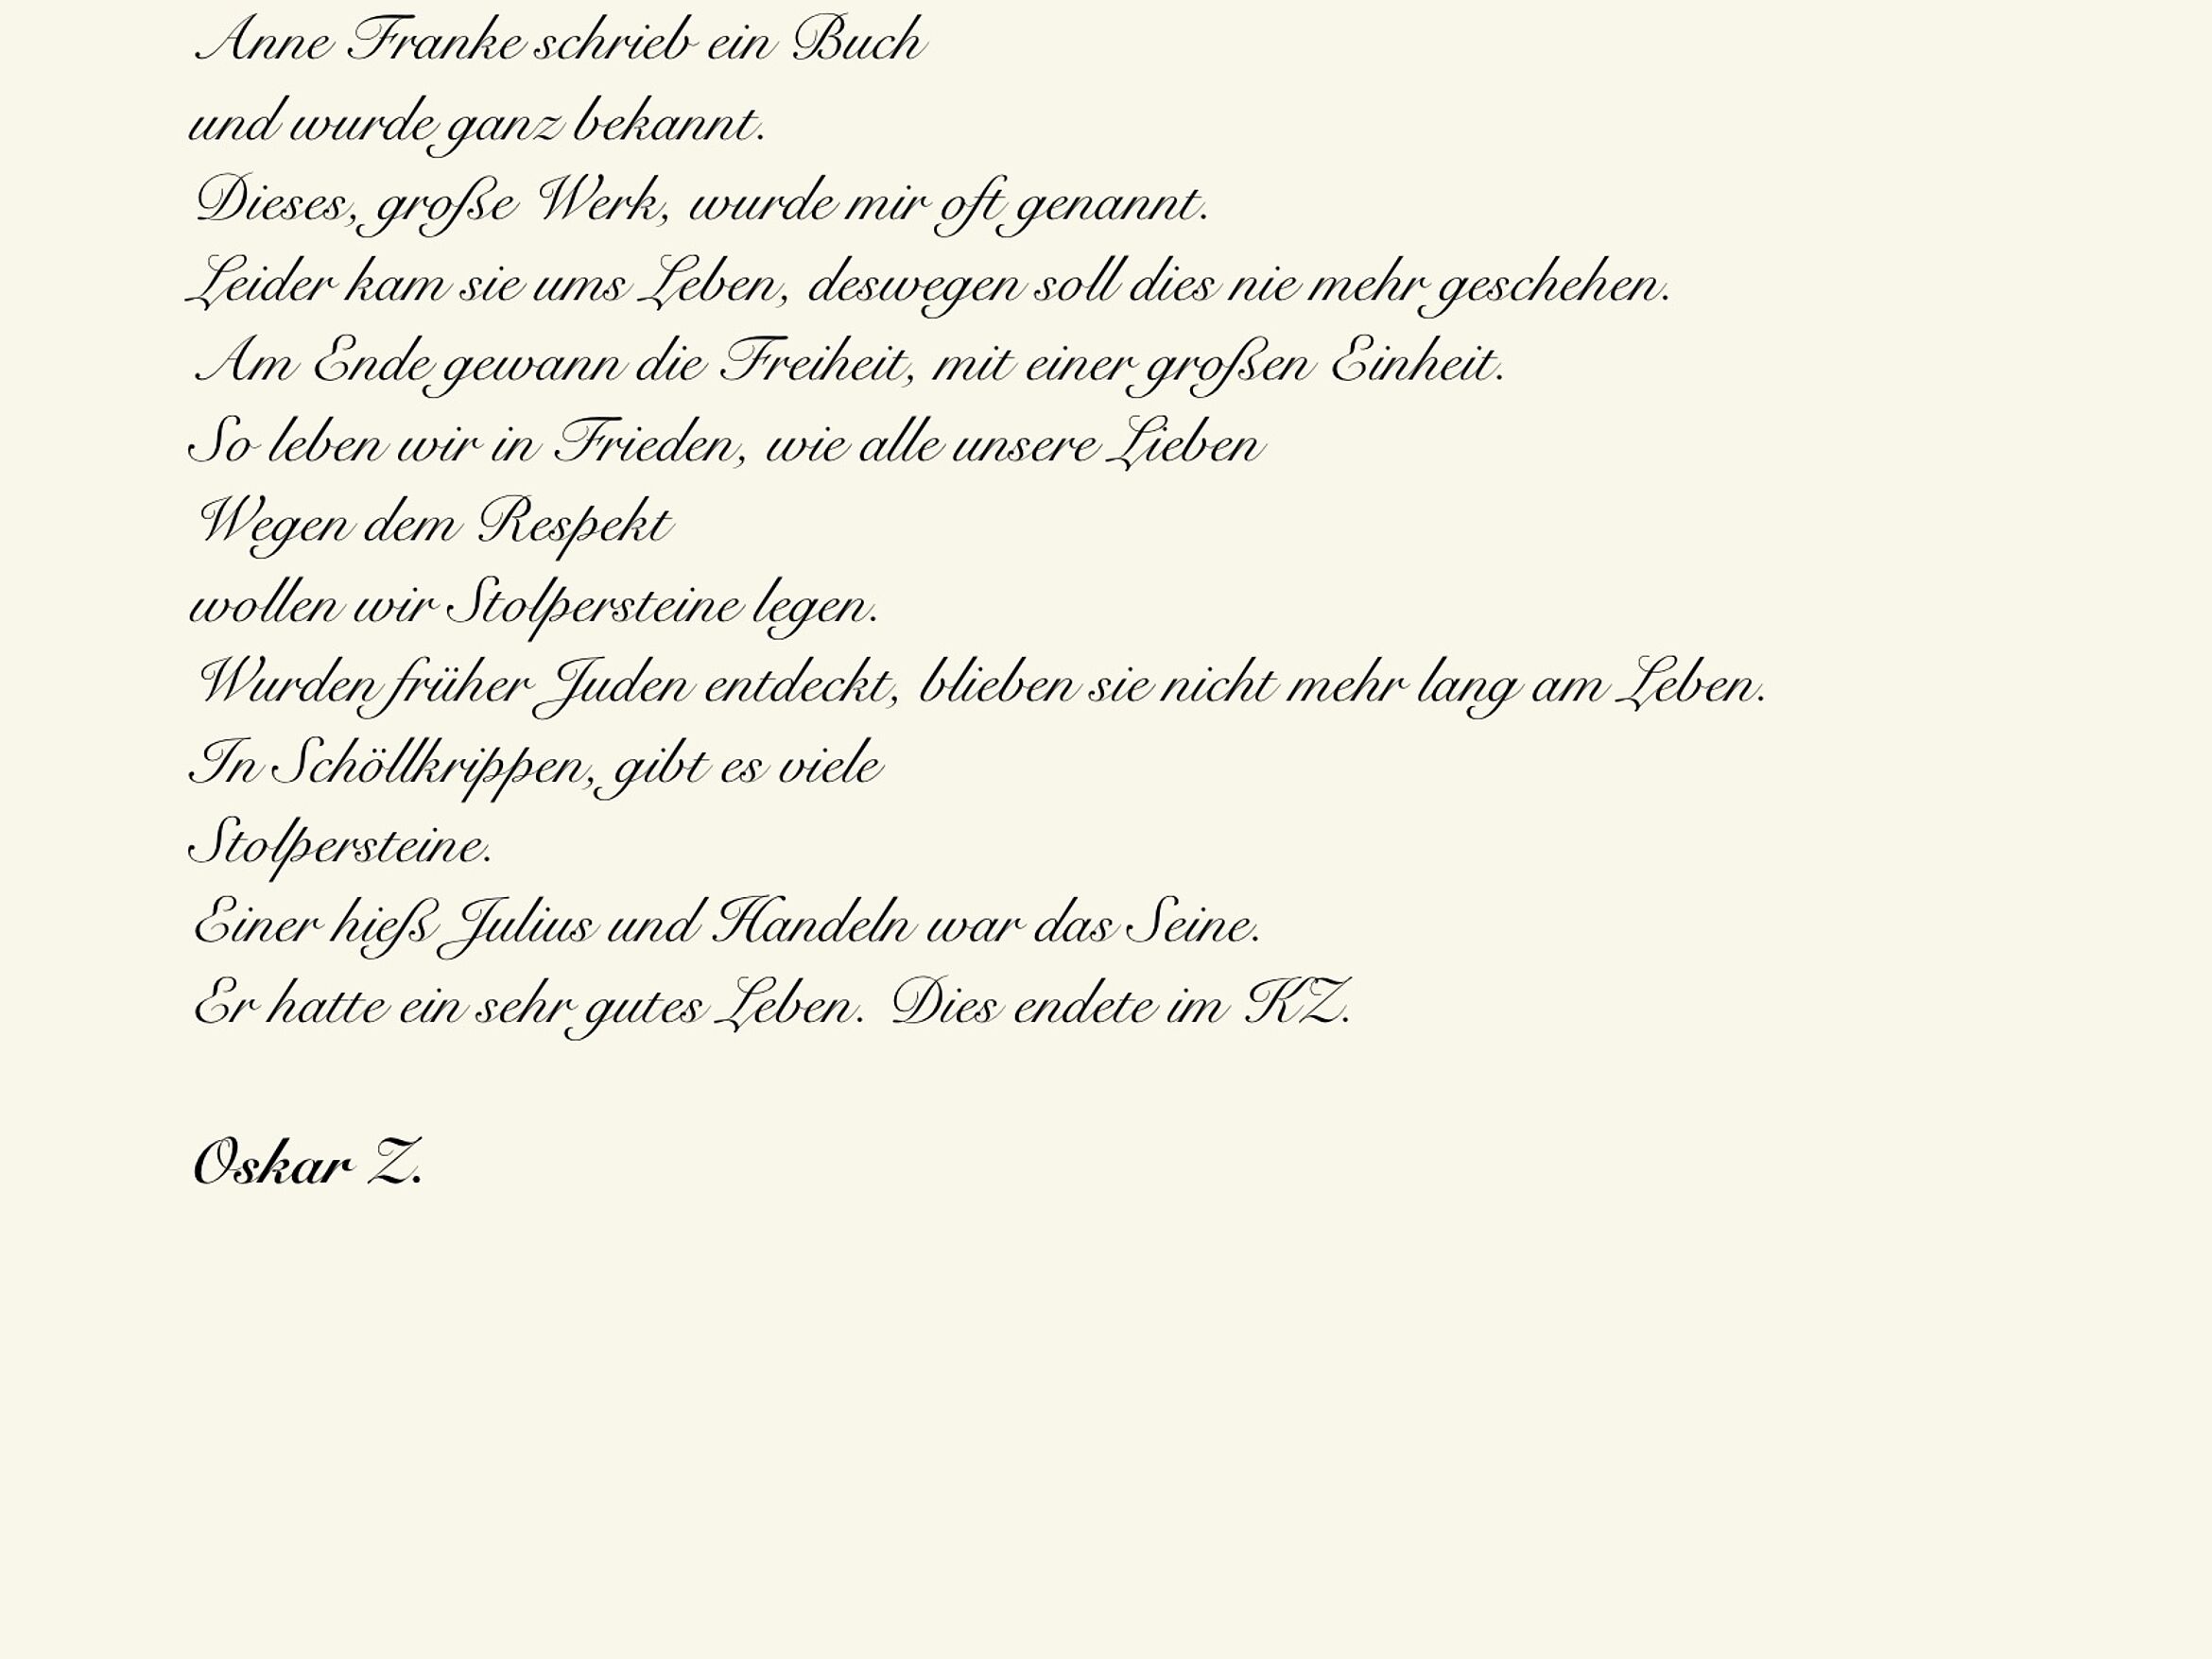 Anne Franke schrieb ein Buch
und wurde ganz bekannt.
Dieses, große Werk, wurde mir oft genannt.
Leider kam sie ums Leben, deswegen soll dies nie mehr geschehen.
Am Ende gewann die Freiheit, mit einer großen Einheit.
So leben wir in Frieden, wie alle unsere Lieben
Wegen dem Respekt
wollen wir Stolpersteine legen.
Wurden früher Juden entdeckt, blieben sie nicht mehr lang am Leben.
In Schöllkrippen, gibt es viele
Stolpersteine.
Einer hieß Julius und Handeln war das Seine.
Er hatte ein sehr gutes Leben. Dies endete im KZ.
Oskar Z.